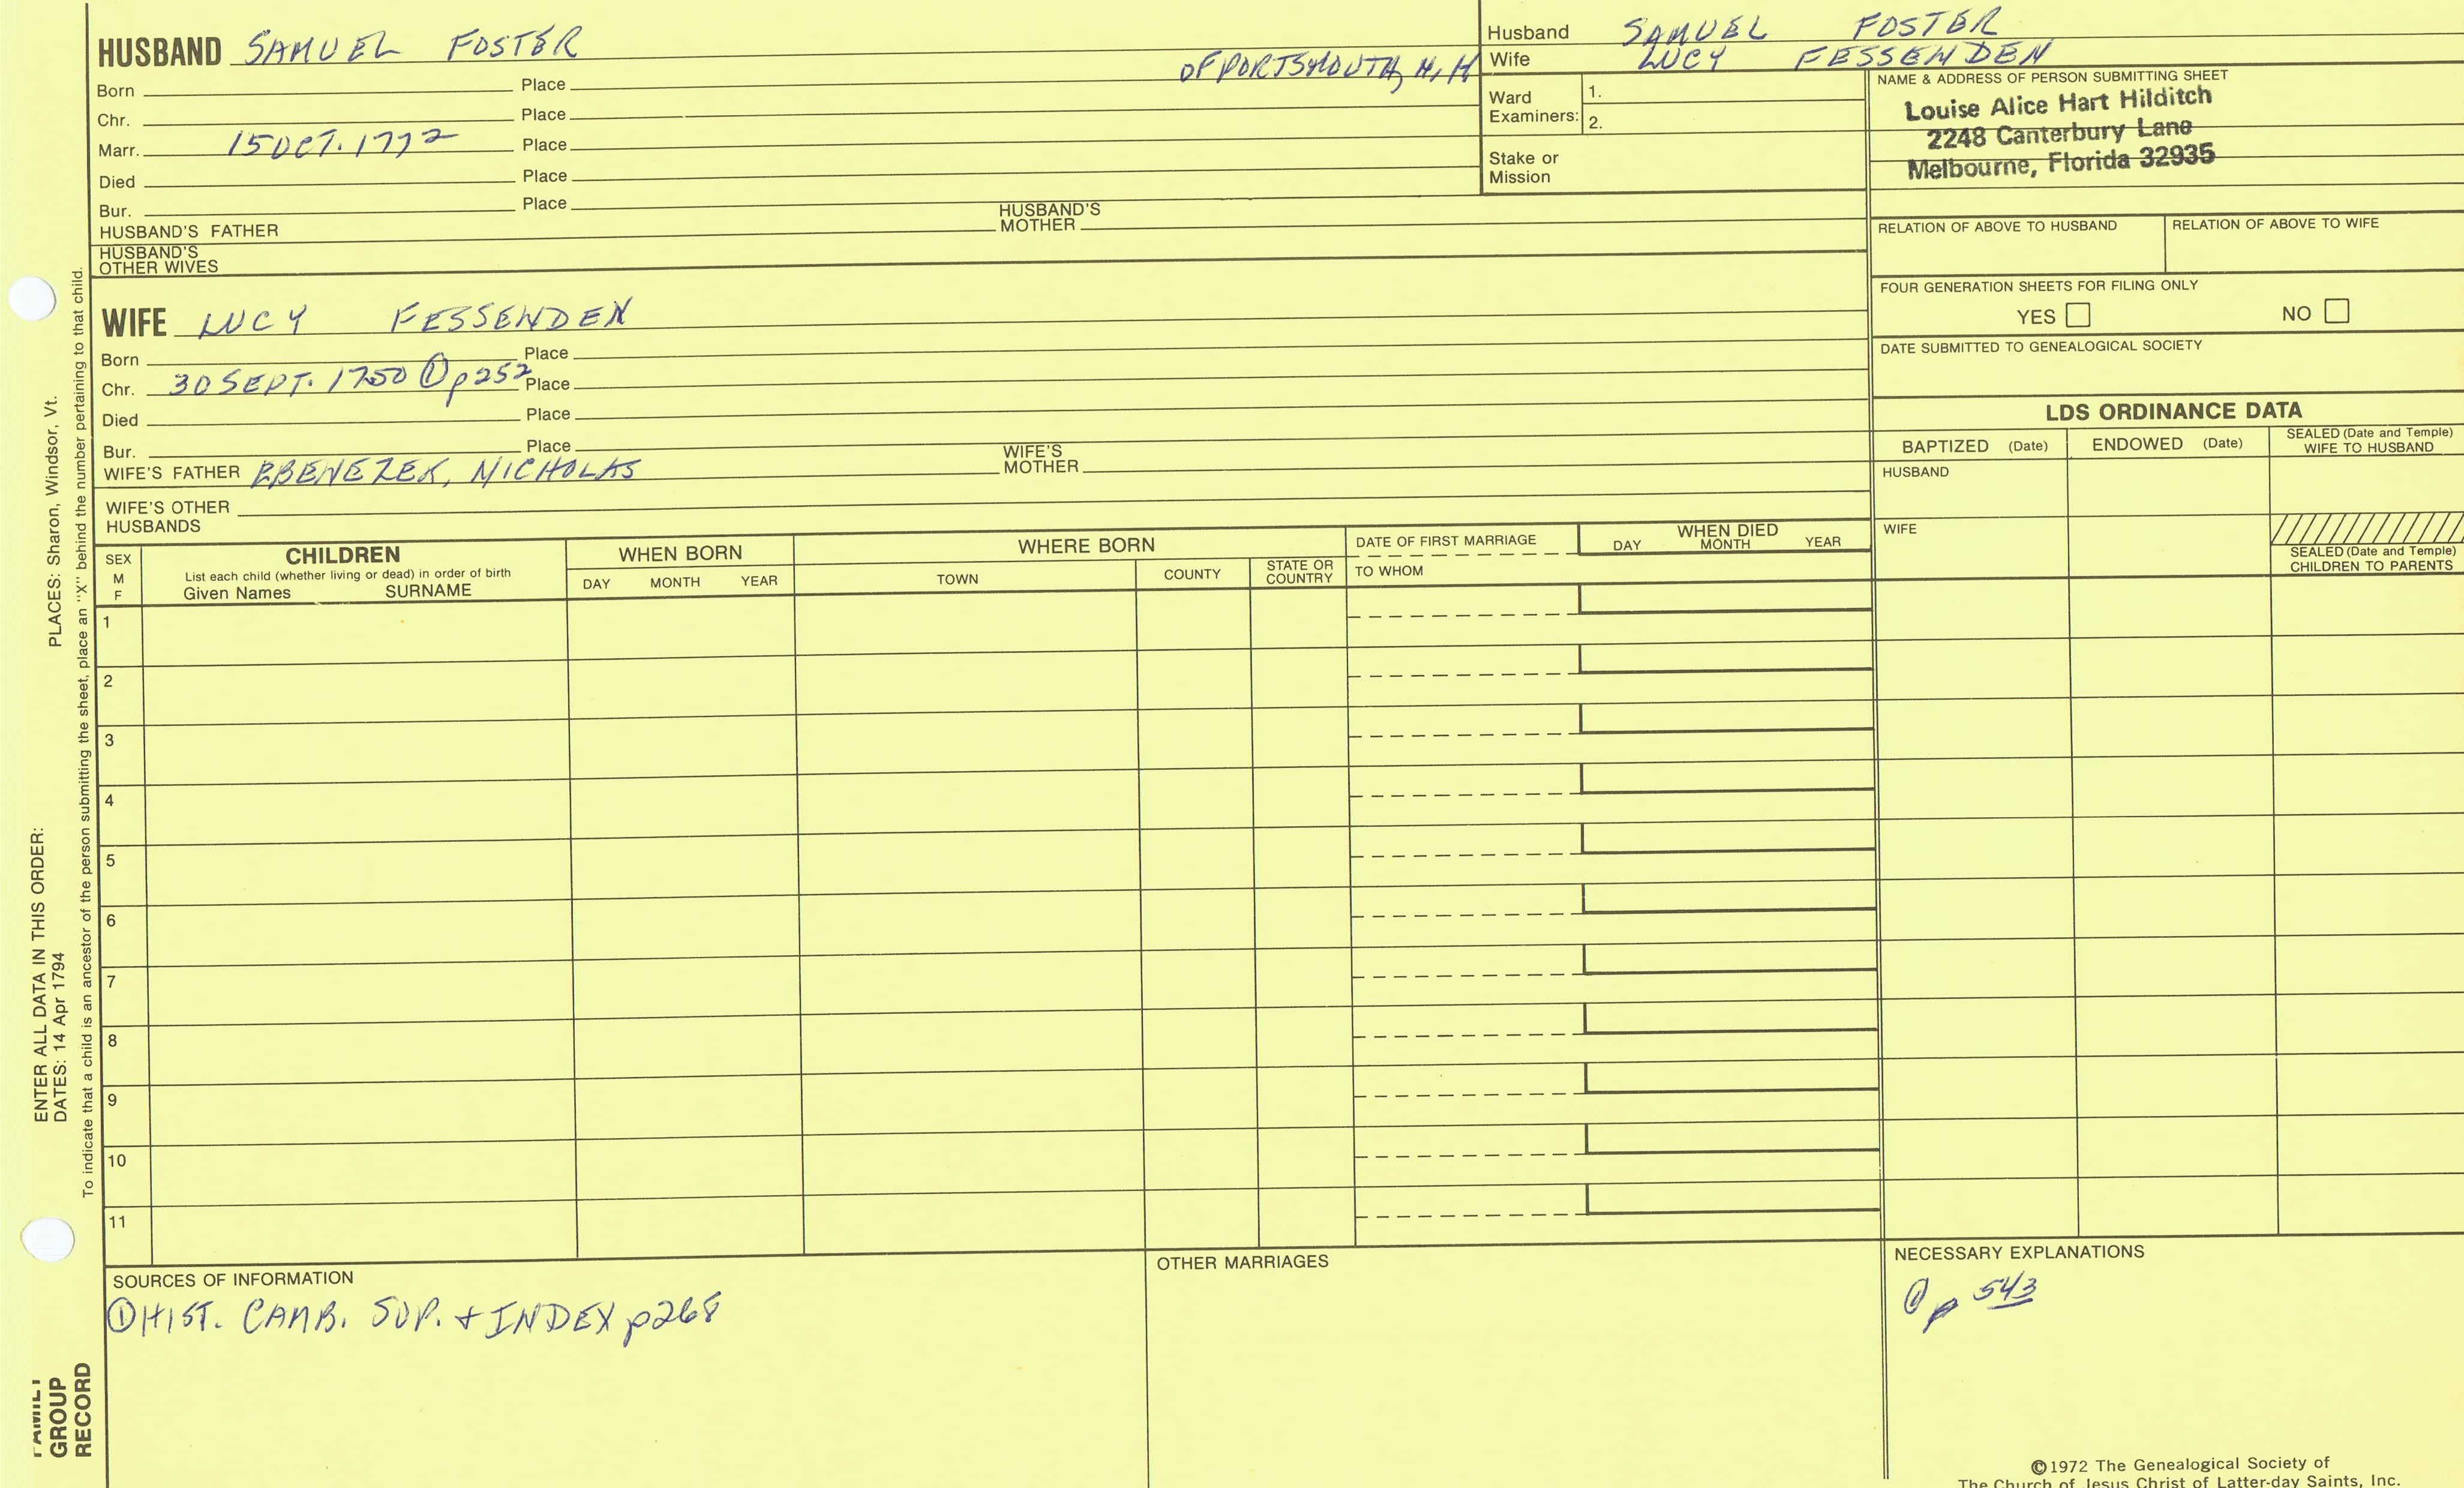 HUSBAND SAMUEL FOSTER
OF PORTSMOUTH, N.H
Born Place
Chr. Place
Marr. 15 OCT. 1772 Place
Died Place
Bur. Place
HUSBAND'S FATHER HUSBAND'S MOTHER
HUSBAND'S OTHER WIVES
Husband SAMUEL FOSTER
Wife LUCY FESSENDEN
Ward Examiners: 1.
2.
Stake or Mission
NAME & ADDRESS OF PERSON SUBMITTING SHEET
Louise Alice Hart Hilditch
2248 Canterbury Lane
Melbourne, Florida 32935
RELATION OF ABOVE TO HUSBAND RELATION OF ABOVE TO WIFE
FOUR GENERATION SHEETS FOR FILING ONLY
YES NO
DATE SUBMITTED TO GENEALOGICAL SOCIETY
WIFE LUCY FESSENDEN
Born Place
Chr. 30 SEPT. 1750 ① p252 Place
Died Place
Bur. Place
WIFE'S FATHER EBENEZER, NICHOLAS WIFE'S MOTHER
WIFE'S OTHER HUSBANDS
LDS ORDINANCE DATA
BAPTIZED (Date) ENDOWED (Date) SEALED (Date and Temple) WIFE TO HUSBAND
HUSBAND
WIFE
SEALED (Date and Temple) CHILDREN TO PARENTS
SEX M F
CHILDREN
List each child (whether living or dead) in order of birth
Given Names SURNAME
WHEN BORN
DAY MONTH YEAR
WHERE BORN
TOWN COUNTY STATE OR COUNTRY
DATE OF FIRST MARRIAGE
TO WHOM
WHEN DIED
DAY MONTH YEAR
1
2
3
4
5
6
7
8
9
10
11
SOURCES OF INFORMATION
① HIST. CAMB. SUP. + INDEX p268
OTHER MARRIAGES
NECESSARY EXPLANATIONS
① p 543
©1972 The Genealogical Society of
The Church of Jesus Christ of Latter-day Saints, Inc.
ENTER ALL DATA IN THIS ORDER:
DATES: 14 Apr 1794
PLACES: Sharon, Windsor, Vt.
To indicate that a child is an ancestor of the person submitting the sheet, place an "X" behind the number pertaining to that child.
FAMILY
GROUP
RECORD